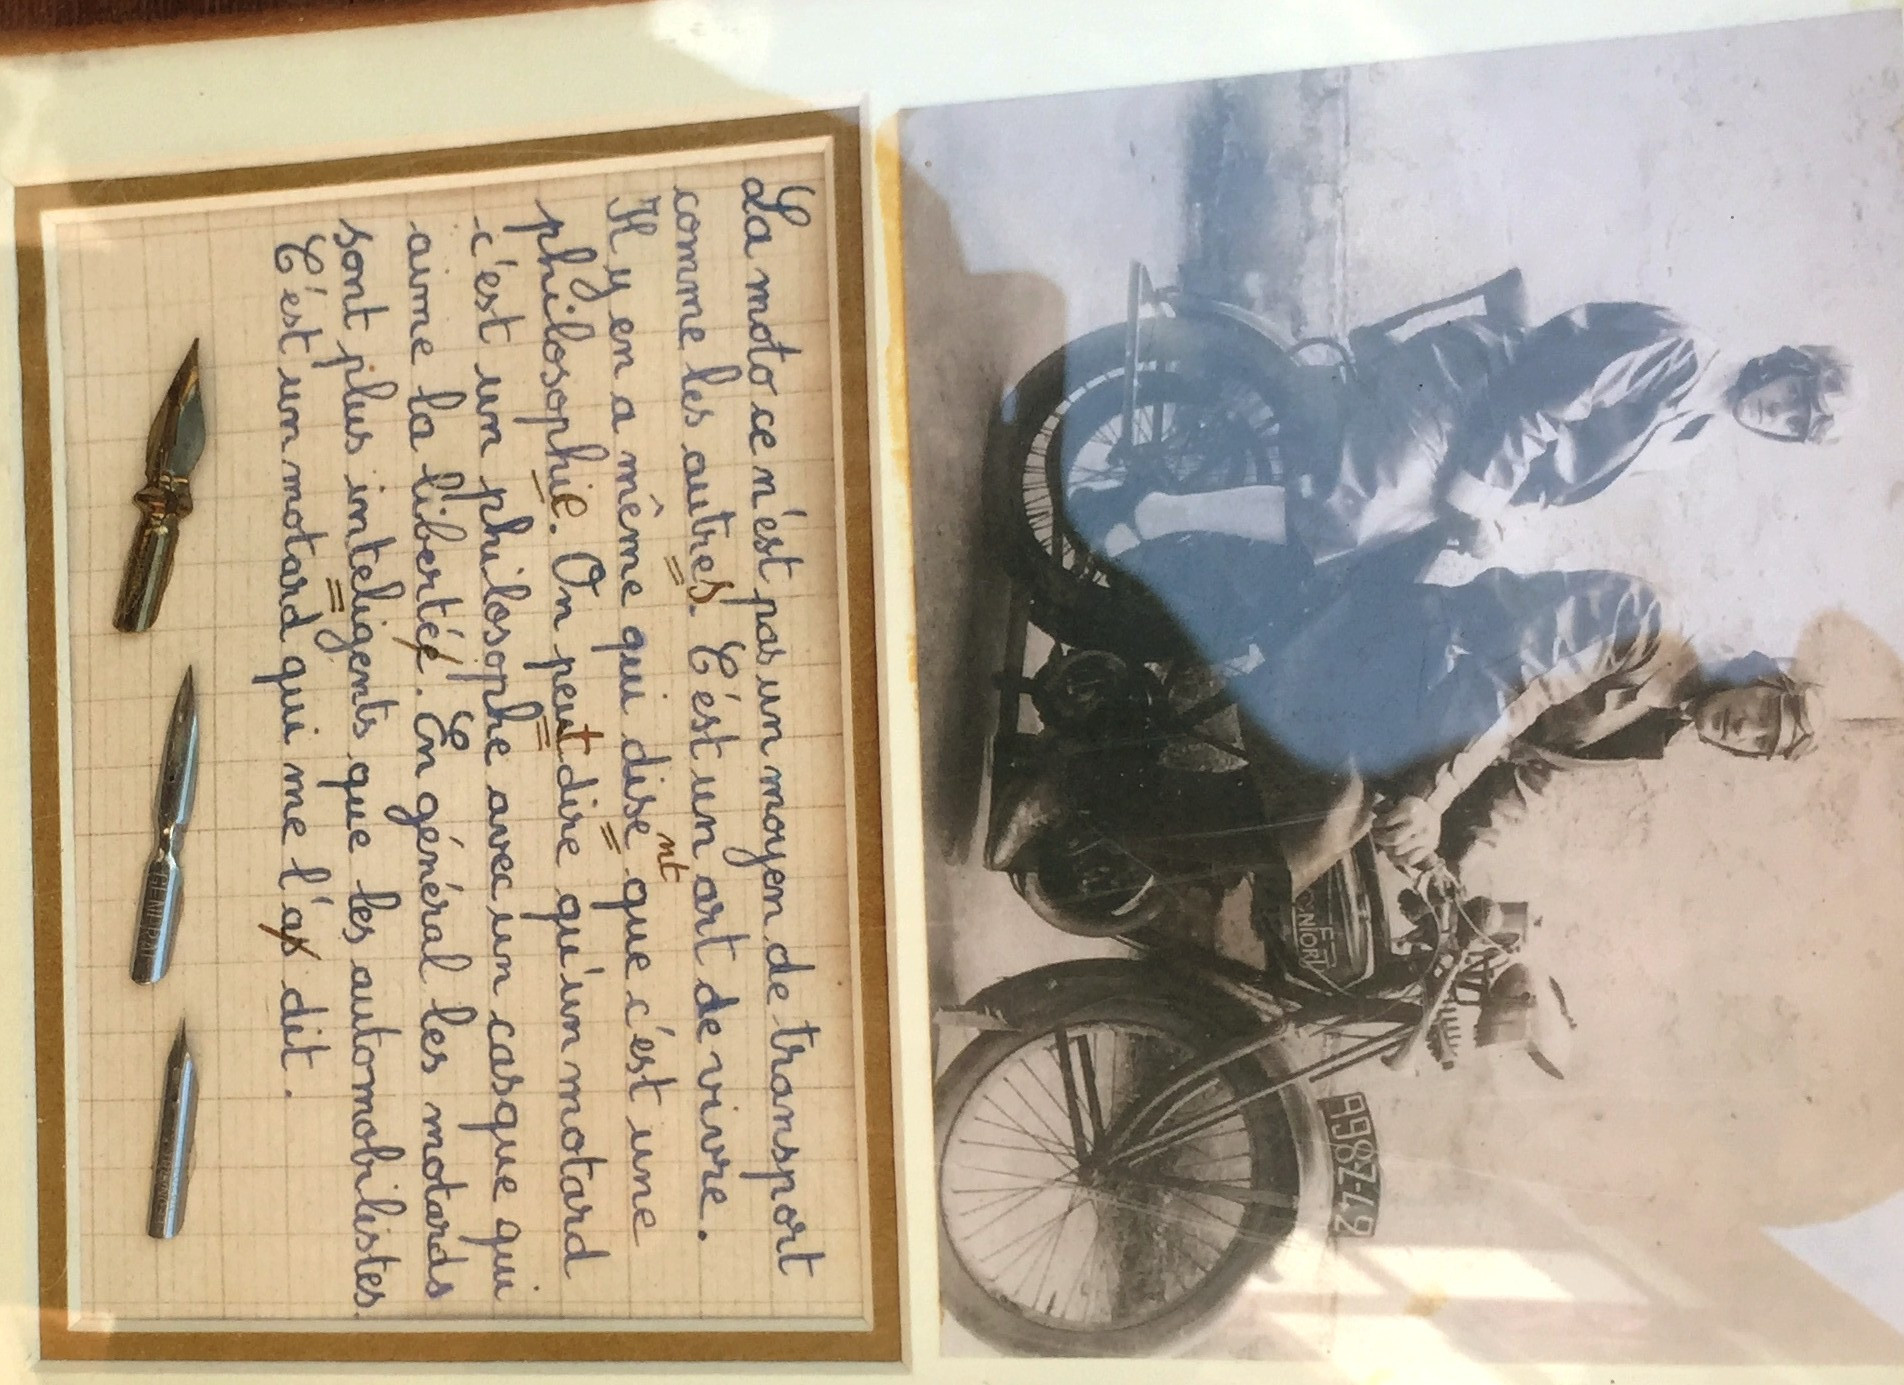 La moto ce n'est pas un moyen de transport
comme les autres. C'est un art de vivre.
Il y en a même qui disent que c'est une
philosophie. On peut dire qu'un motard
c'est un philosophe avec un casque qui
aime la liberté. En général les motards
sont plus inteligents que les automobilistes.
C'est un motard qui me l'as dit.
9987-Z-42